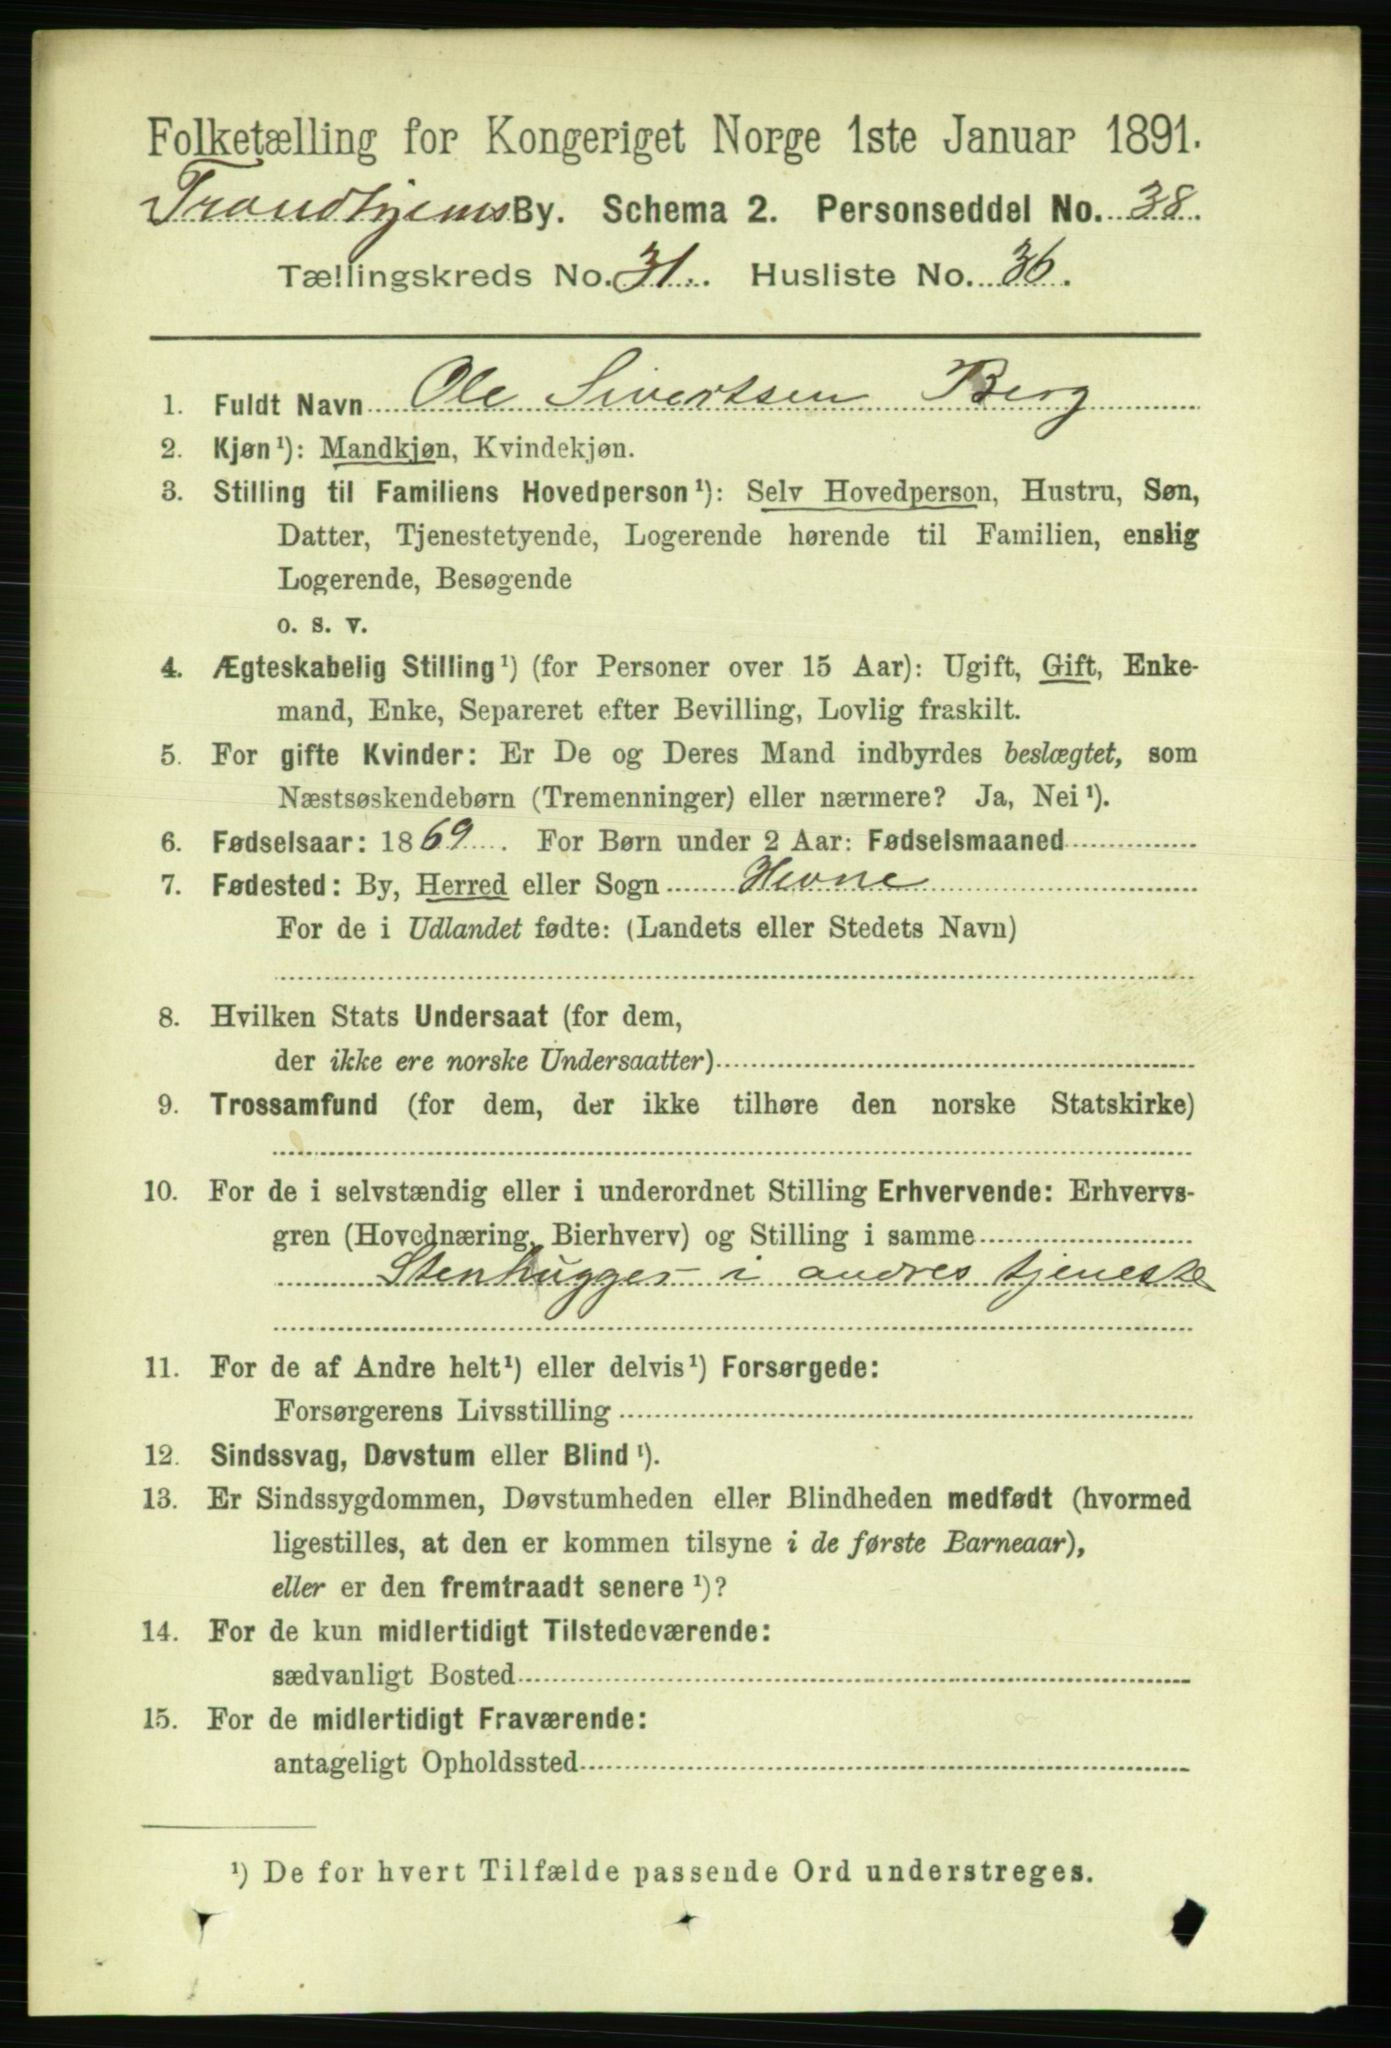 Folketælling for Kongeriget Norge 1ste Januar 1891.
Trondhjems By. Schema 2. Personseddel No. 38.
Tællingskreds No. 31. Husliste No. 36.
1. Fuldt Navn Ole Sivertsen Berg
2. Kjøn¹): Mandkjøn, Kvindekjøn.
3. Stilling til Familiens Hovedperson¹): Selv Hovedperson, Hustru, Søn,
Datter, Tjenestetyende, Logerende hørende til Familien, enslig
Logerende, Besøgende
o. s. v.
4. Ægteskabelig Stilling¹) (for Personer over 15 Aar): Ugift, Gift, Enke-
mand, Enke, Separeret efter Bevilling, Lovlig fraskilt.
5. For gifte Kvinder: Er De og Deres Mand indbyrdes beslægtet, som
Næstsøskendebørn (Tremenninger) eller nærmere? Ja, Nei¹).
6. Fødselsaar: 1869. For Børn under 2 Aar: Fødselsmaaned
7. Fødested: By, Herred eller Sogn Hevne
For de i Udlandet fødte: (Landets eller Stedets Navn)
8. Hvilken Stats Undersaat (for dem,
der ikke ere norske Undersaatter)
9. Trossamfund (for dem, der ikke tilhøre den norske Statskirke)
10. For de i selvstændig eller i underordnet Stilling Erhvervende: Erhvervs-
gren (Hovednæring, Bierhverv) og Stilling i samme
Stenhugger i andres tjeneste
11. For de af Andre helt¹) eller delvis¹) Forsørgede:
Forsørgerens Livsstilling
12. Sindssvag, Døvstum eller Blind¹).
13. Er Sindssygdommen, Døvstumheden eller Blindheden medfødt (hvormed
ligestilles, at den er kommen tilsyne i de første Barneaar),
eller er den fremtraadt senere¹)?
14. For de kun midlertidigt Tilstedeværende:
sædvanligt Bosted
15. For de midlertidigt Fraværende:
antageligt Opholdssted
¹) De for hvert Tilfælde passende Ord understreges.